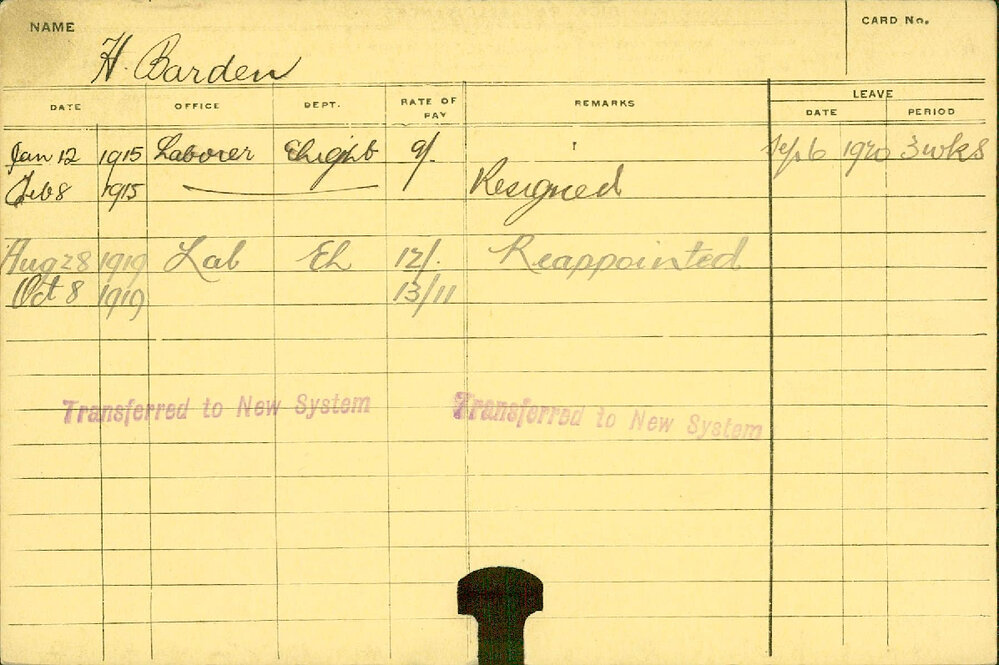 NAME
CARD No.
H. Barden
DATE OFFICE DEPT. RATE OF PAY REMARKS LEAVE
DATE PERIOD
Jan 12 1915 Laborer Elight 9/. Sep 6 1920 3 wks
Feb 8 1915 Resigned
Aug 28 1919 Lab El 12/. Reappointed
Oct 8 1919 13/11
Transferred to New System Transferred to New System